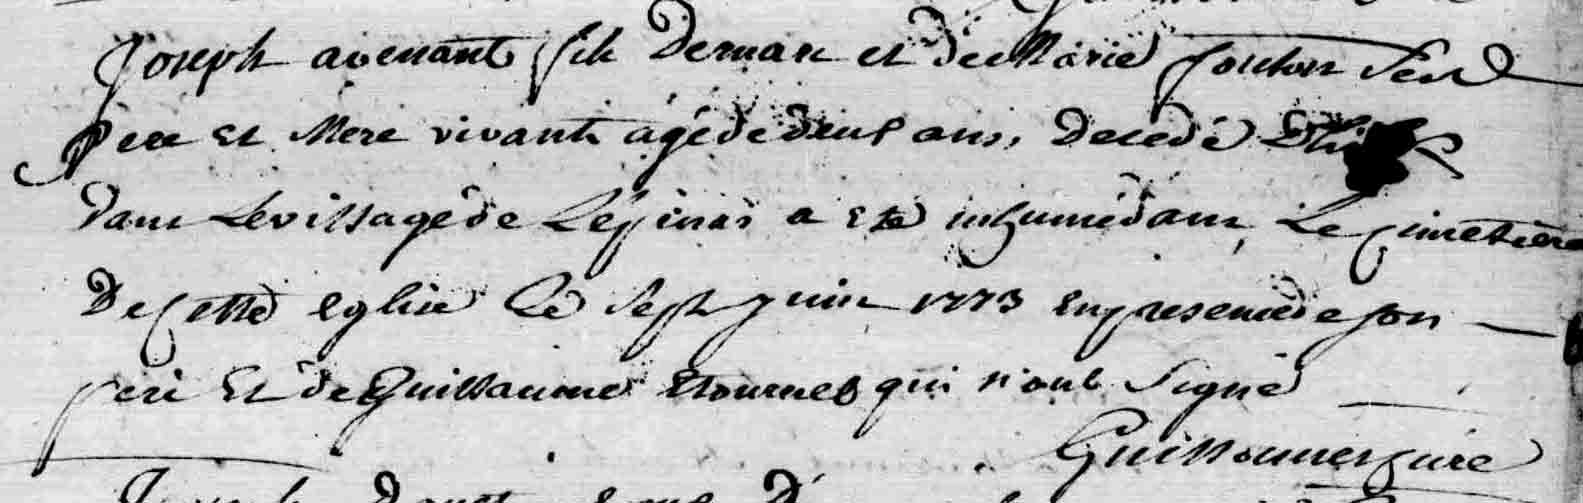 Joseph avenant fils de marc et de Marie fouton ses
pere et Mere vivants agé de deux ans, decedé
dans le village de Lépinas a eté inhumé dans Le cimetiere
De cette eglise Le sept juin 1773 en presence de son
pere Et de Guillaume Etournet qui n'ont signé
Guillaume curé